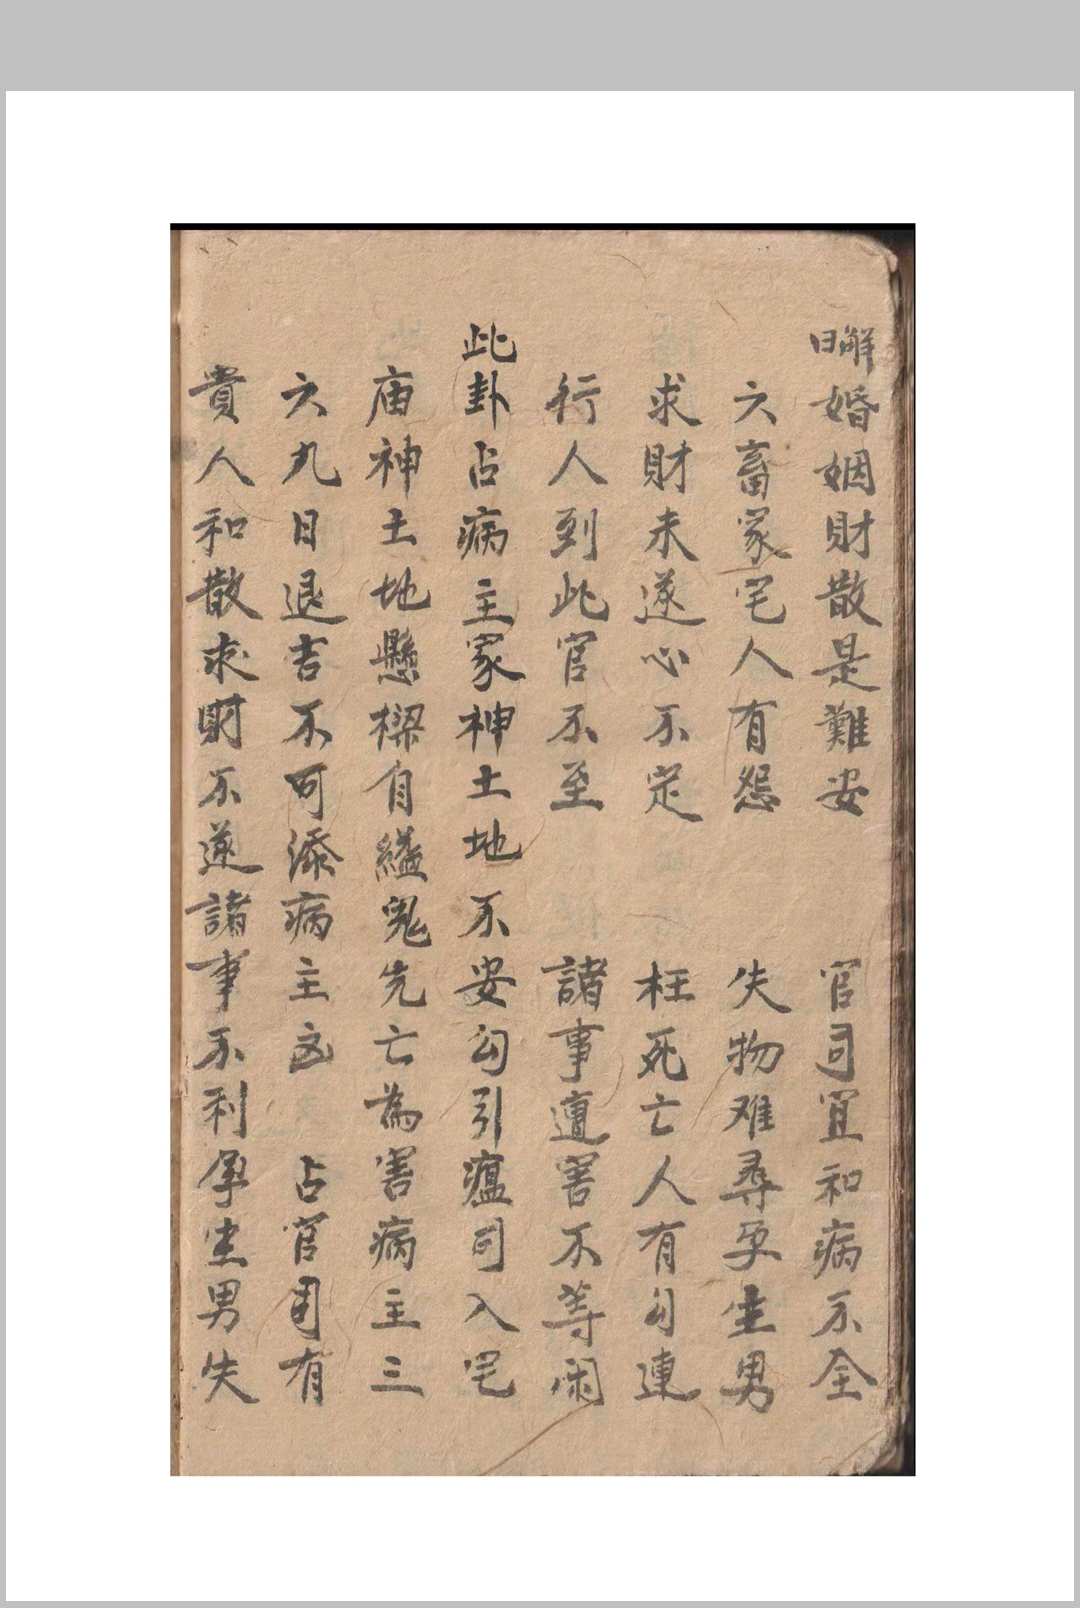 解曰婚姻財散是難安 官司宜和病不全
六畜家宅人有怨 失物难尋孕生男
求財未遂心不定 枉死亡人有勾連
行人到此官不至 諸事遭害不等闲
此卦占病主家神土地不安勾引瘟司入宅
庙神土地懸樑自縊鬼先亡為害病主三
六九日退吉不可添病主凶 占官司有
貴人和散求財不遂諸事不利孕生男失